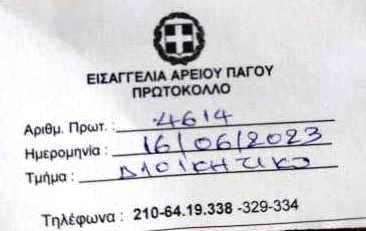 ΕΙΣΑΓΓΕΛΙΑ ΑΡΕΙΟΥ ΠΑΓΟΥ
ΠΡΩΤΟΚΟΛΛΟ
Αριθμ. Πρωτ. : 4614
Ημερομηνία : 16/06/2023
Τμήμα : ΔΙΟΙΚΗΤΙΚΟ
Τηλέφωνα : 210-64.19.338 -329-334